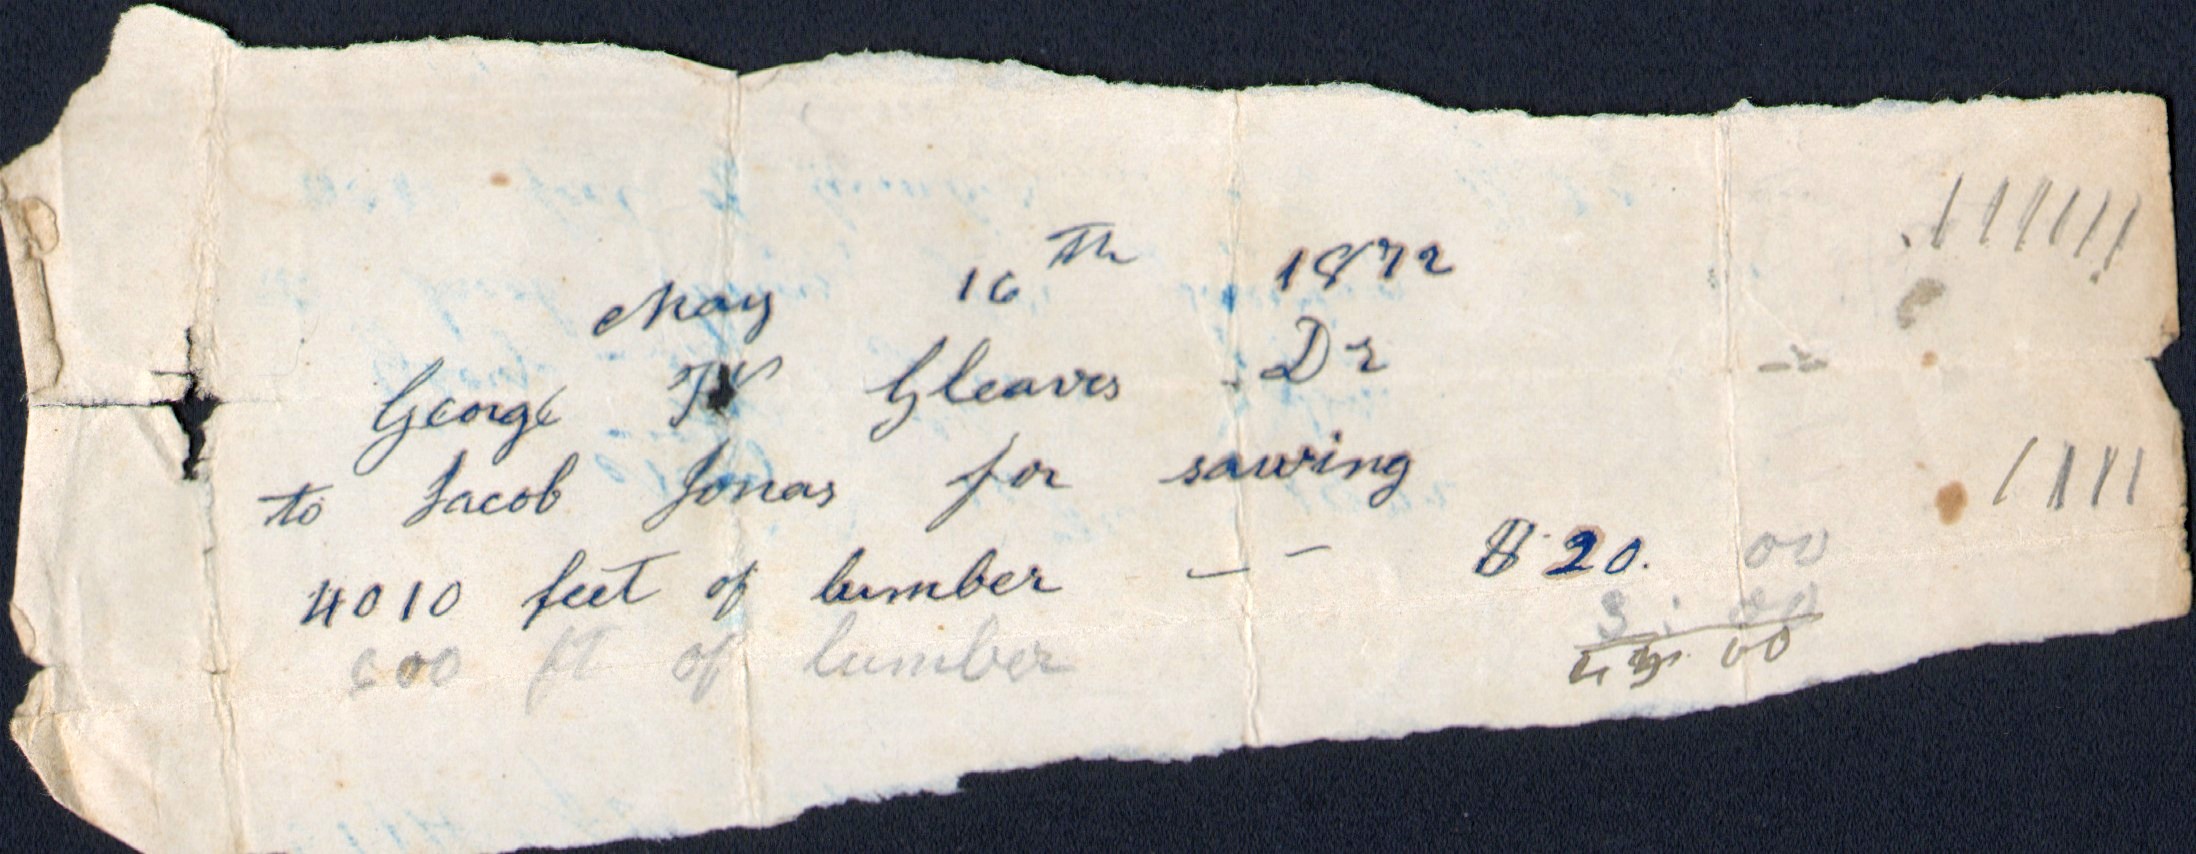 May 16th 1872
George W Gleaves Dr
to Jacob Jonas for sawing
4010 feet of lumber — — $20. 00
600 ft of lumber 3 : 00
23. 00